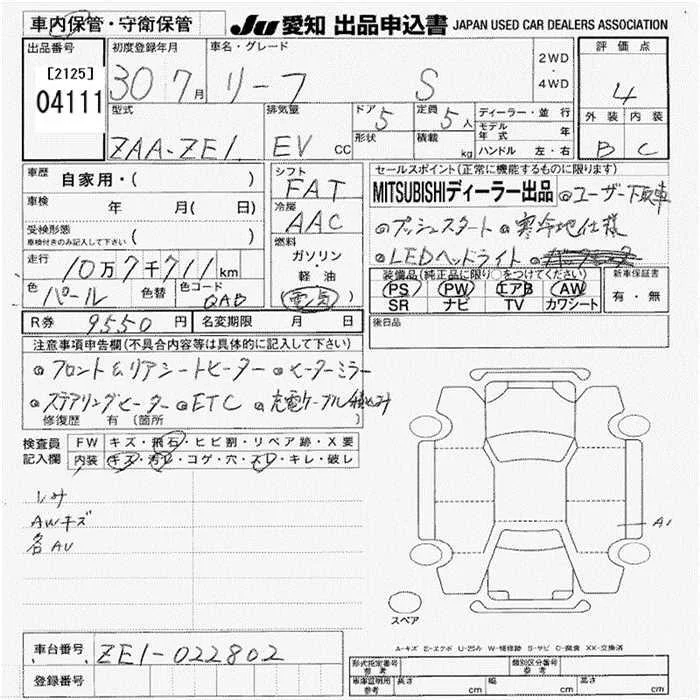 車内保管・守衛保管 JU 愛知 出品申込書 JAPAN USED CAR DEALERS ASSOCIATION
出品番号 初度登録年月 車名・グレード 2WD・4WD 評価点
[2125] 30 7月 リーフ S 4
04111
型式 排気量 ドア 5 定員 5人 ディーラー・並行 外装 内装
ZAA-ZE1 EV CC 形状 積載 kg モデル年式 年 B C
ハンドル 左・右
車歴 自家用・( ) シフト セールスポイント(正常に機能するものに限ります)
FAT MITSUBISHIディーラー出品 ◎ユーザー下取車
車検 年 月( 日) 冷房 AAC ◎プッシュスタート ◎寒冷地仕様
受検形態 ( ) 燃料 ◎LEDヘッドライト
車検付きのみ記入して下さい ガソリン
走行 10万7千711km 軽油 装備品(純正品に限り○をつけてください) 新車保証書
色 パール 色替 色コード QAB 電気 PS PW エアB AW 有・無
SR ナビ TV カワシート
R券 9550円 名変期限 月 日 後日品
注意事項申告欄(不具合内容等は具体的に記入して下さい)
◎フロント&リアシートヒーター ◎ヒーターミラー
◎ステアリングヒーター ◎ETC ◎充電ケーブル積込み
修復歴 有 (箇所 )
検査員 FW キズ・飛石・ヒビ割・リペア跡・X要
記入欄 内装 キズ・汚レ・コゲ・穴・スレ・キレ・破レ
AWキズ
各AU
A1
スペア
A-キズ E-エクボ U-凹み W-補修跡 S-サビ C-腐食 XX-交換済
車台番号 ZE1-022802
登録番号
形式指定番号 参考 類別区分番号 参考
車庫証明用 参考 長さ cm 幅 cm 高さ cm